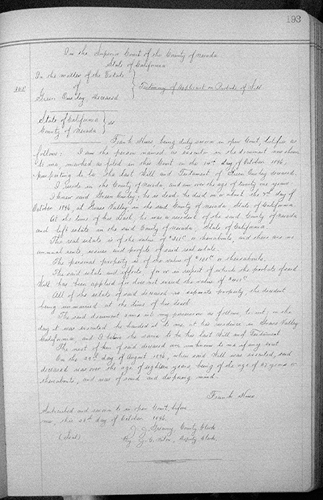 193
In the Superior Court of the County of Nevada
State of California
In the matter of the Estate
of
deceased.
Testimony of Applicant on Probate of Will
State of California
County of Nevada } ss
being duly sworn in open Court, testifies as
follows: I am the person named as executor in the document now shown
to me, marked as filed in this Court on the day of October 1896,
purporting to be the last Will and Testament of deceased.
I reside in the County of Nevada and am over the age of twenty one years
I knew said he is dead. he died on or about the day of
October 1896, at Grass Valley in the said County of Nevada State of California
At the time of his death, he was a resident of the said County of Nevada
and left estate in the said County of Nevada, State of California
The real estate is of the value of or thereabouts, and there are no
annual rents, issues and profits of said real estate.
The personal property is of the value of or thereabouts.
The said estate and effects, for or in respect of which the probate of said
Will has been applied for does not exceed the value of
All of the estate of said deceased is separate property, the decedent
being unmarried at the time of his death
The said document came into my possession as follows, to wit; on the
day it was executed he handed it to me, at his residence in Grass Valley
California, and I believe the same to be his last Will and Testament
The next of kin of said deceased are unknown to me if any exist
On the day of August 1896, when said Will was executed, said
deceased was over the age of eighteen years, being of the age of years or
thereabouts, and was of sound and disposing mind.
Frank
Subscribed and sworn to in open Court before
me, this day of October 1896
County Clerk
(Seal) By Deputy Clerk.